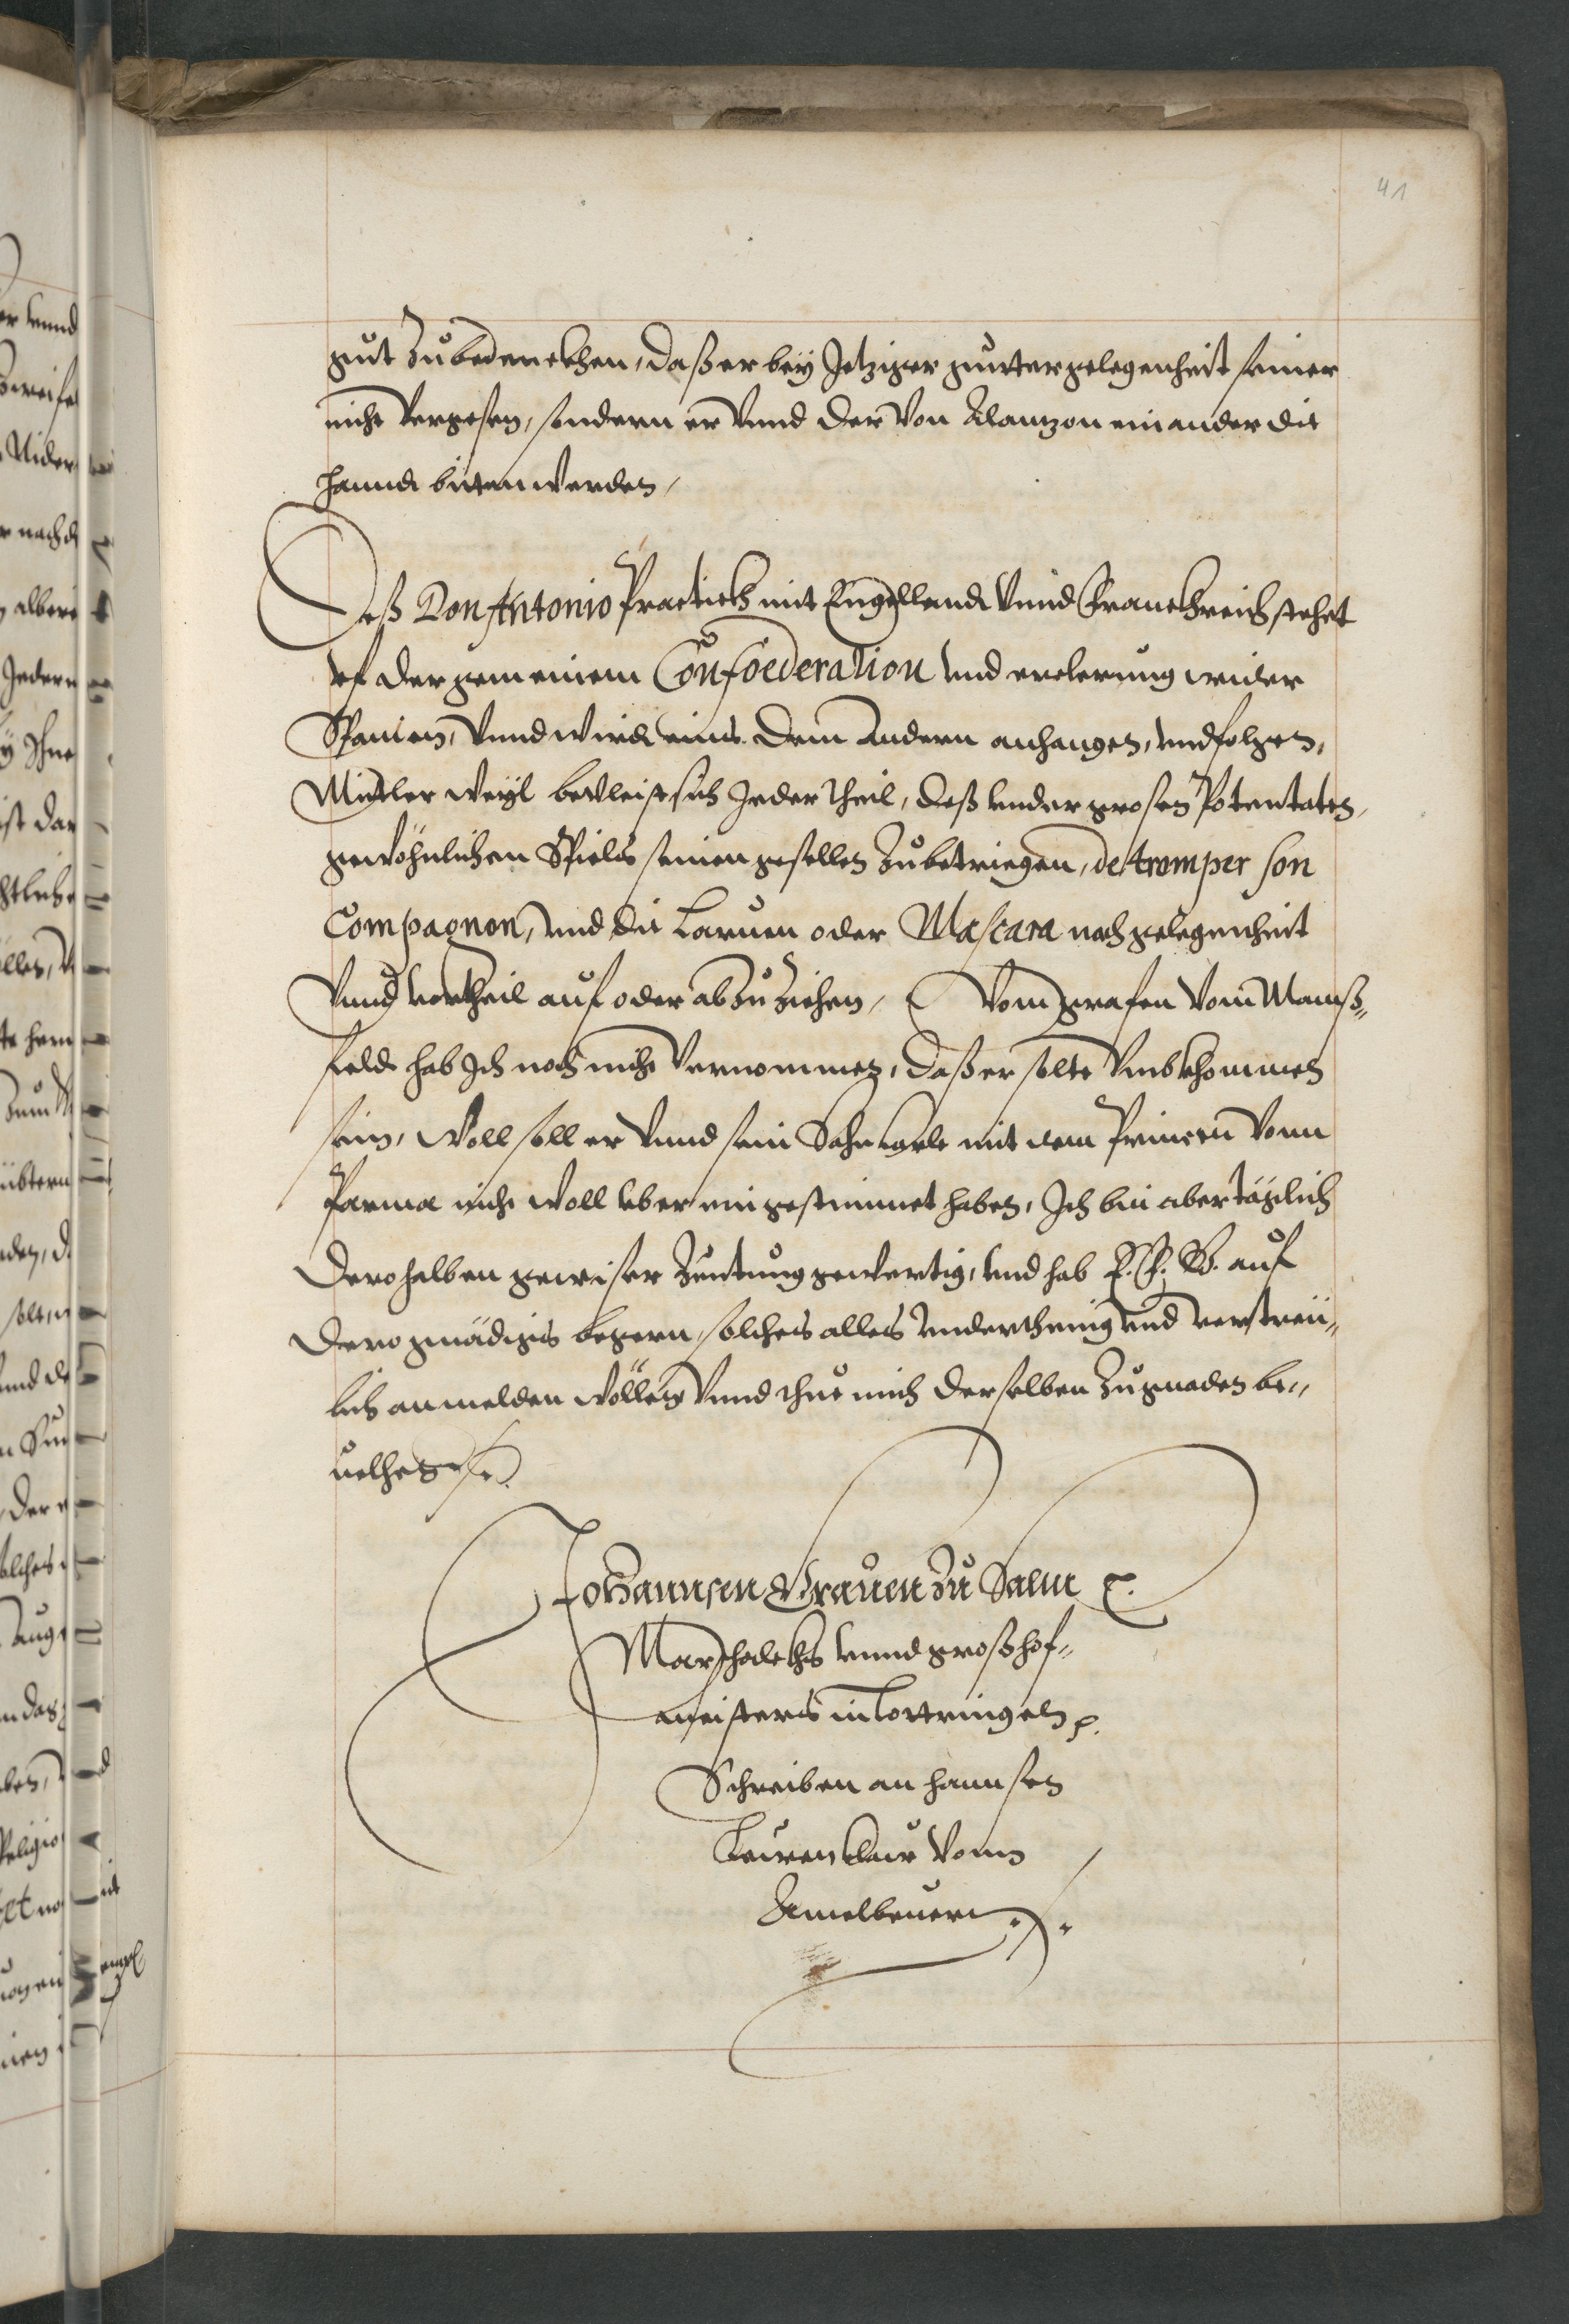 41
gut Zubedenckhen, daß er bey Jetziger gueter gelegenheit seiner
nicht vergesen, sondern er vnnd der von Alantzon einander die
hanndt bieten werden,
Deß Don Antonio Practickh mit Engellandt vnnd Franckhreich stehet
vf der gemeinem Confoederation vnd erclerung wider
Spanien, vnnd wirdt eins dem Andern anhangen, vnd folgen,
Mittler weyl bevleist sich Jeder theil, deß vnder grosen Potentaten
gewöhnlichen Spiels seinen gesellen Zubetriegen, de tromper son
Compagnon, vnd die Laruen oder Mascara nach gelegenheit
vnnd vortheil auf oder ab Zu Ziehen, Vom grafen vom Manß„
feldt hab Ich noch nicht vernommen, daß er solte vmbkhommen
sein, Woll soll er vnnd sein Sohn Carle mit dem Princen vonn
Parma nicht woll vberein gestimmet haben, Ich bin aber täglich
derohalben gewiser Zeutung gewertig, vnd hab E. F. G. auf
dero gnädigs begern, solches alles vnderthenig vnd vertreü„
lich anmelden wöllen vnnd thue mich derselben Zu gnaden be„
uelhen
Johannsen Grauen Zu Salm ꝛc.
Marschalckhs vnnd großhof„
meisters in Lottringen ꝛc.
Schreiben an hannsen
Leürenklaw vonn
Amelbeuern